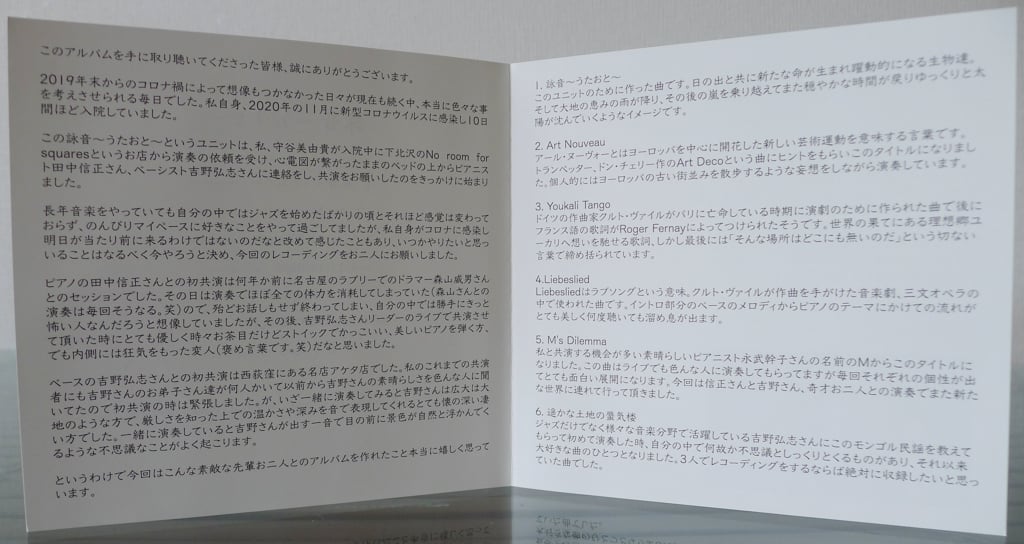 このアルバムを手に取り聴いてくださった皆様、誠にありがとうございます。
2019年末からのコロナ禍によって想像もつかなかった日々が現在も続く中、本当に色々な事
を考えさせられる毎日でした。私自身、2020年の11月に新型コロナウイルスに感染し10日
間ほど入院していました。
この詠音〜うたおと〜というユニットは、私、守谷美由貴が入院中に下北沢のNo room for
squaresというお店から演奏の依頼を受け、心電図が繋がったままのベッドの上からピアニス
ト田中信正さん、ベーシスト吉野弘志さんに連絡をし、共演をお願いしたのをきっかけに始まり
ました。
長年音楽をやっていても自分の中ではジャズを始めたばかりの頃とそれほど感覚は変わって
おらず、のんびりマイペースに好きなことをやって過ごしてましたが、私自身がコロナに感染し
明日が当たり前に来るわけではないのだなと改めて感じたこともあり、いつかやりたいと思っ
いることはなるべく今やろうと決め、今回のレコーディングをお二人にお願いしました。
ピアノの田中信正さんとの初共演は何年か前に名古屋のラブリーでのドラマー森山威男さん
とのセッションでした。その日は演奏でほぼ全ての体力を消耗してしまっていた（森山さんとの
演奏は毎回そうなる。笑）ので、殆どお話しもせず終わってしまい、自分の中では勝手にきっと
怖い人なんだろうと想像していましたが、その後、吉野弘志さんリーダーのライブで共演させ
て頂いた時にとても優しく時々お茶目だけどストイックでかっこいい、美しいピアノを弾く方、
でも内側には狂気をもった変人（褒め言葉です。笑）だなと思いました。
ベースの吉野弘志さんとの初共演は西荻窪にある名店アケタ店でした。私のこれまでの共演
者にも吉野さんのお弟子さん達が何人かいて以前から吉野さんの素晴らしさを色んな人に聞
いてたので初共演の時は緊張しました。が、いざ一緒に演奏してみると吉野さんは広大な大
地のような方で、厳しさを知った上での温かさや深みを音で表現してくれるとても懐の深い凄
い方でした。一緒に演奏していると吉野さんが出す一音で目の前に景色が自然と浮かんでく
るような不思議なことがよく起こります。
というわけで今回はこんな素敵な先輩お二人とのアルバムを作れたこと本当に嬉しく思って
います。
1. 詠音〜うたおと〜
このユニットのために作った曲です。日の出と共に新たな命が生まれ躍動的になる生物達。
そして大地の恵みの雨が降り、その後の嵐を乗り越えてまた穏やかな時間が戻りゆっくりと太
陽が沈んでいくようなイメージです。
2. Art Nouveau
アール・ヌーヴォーとはヨーロッパを中心に開花した新しい芸術運動を意味する言葉です。
トランペッター、ドン・チェリー作のArt Decoという曲にヒントをもらいこのタイトルになりまし
た。個人的にはヨーロッパの古い街並みを散歩するような妄想をしながら演奏しています。
3. Youkali Tango
ドイツの作曲家クルト・ヴァイルがパリに亡命している時期に演劇のために作られた曲で後に
フランス語の歌詞がRoger Fernayによってつけられたそうです。世界の果てにある理想郷ユ
ーカリへ想いを馳せる歌詞、しかし最後には「そんな場所はどこにも無いのだ」という切ない
言葉で締め括られています。
4.Liebeslied
Liebesliedはラブソングという意味。クルト・ヴァイルが作曲を手がけた音楽劇、三文オペラの
中で使われた曲です。イントロ部分のベースのメロディからピアノのテーマにかけての流れが
とても美しく何度聴いても溜め息が出ます。
5. M's Dilemma
私と共演する機会が多い素晴らしいピアニスト永武幹子さんの名前のMからこのタイトルに
なりました。この曲はライブでも色んな人に演奏してもらってますが毎回それぞれの個性が出
てとても面白い展開になります。今回は信正さんと吉野さん、奇才お二人との演奏でまた新た
な世界に連れて行って頂きました。
6. 遥かな土地の蜃気楼
ジャズだけでなく様々な音楽分野で活躍している吉野弘志さんにこのモンゴル民謡を教えて
もらって初めて演奏した時、自分の中で何故か不思議としっくりとくるものがあり、それ以来
大好きな曲のひとつとなりました。3人でレコーディングをするならば絶対に収録したいと思っ
ていた曲でした。